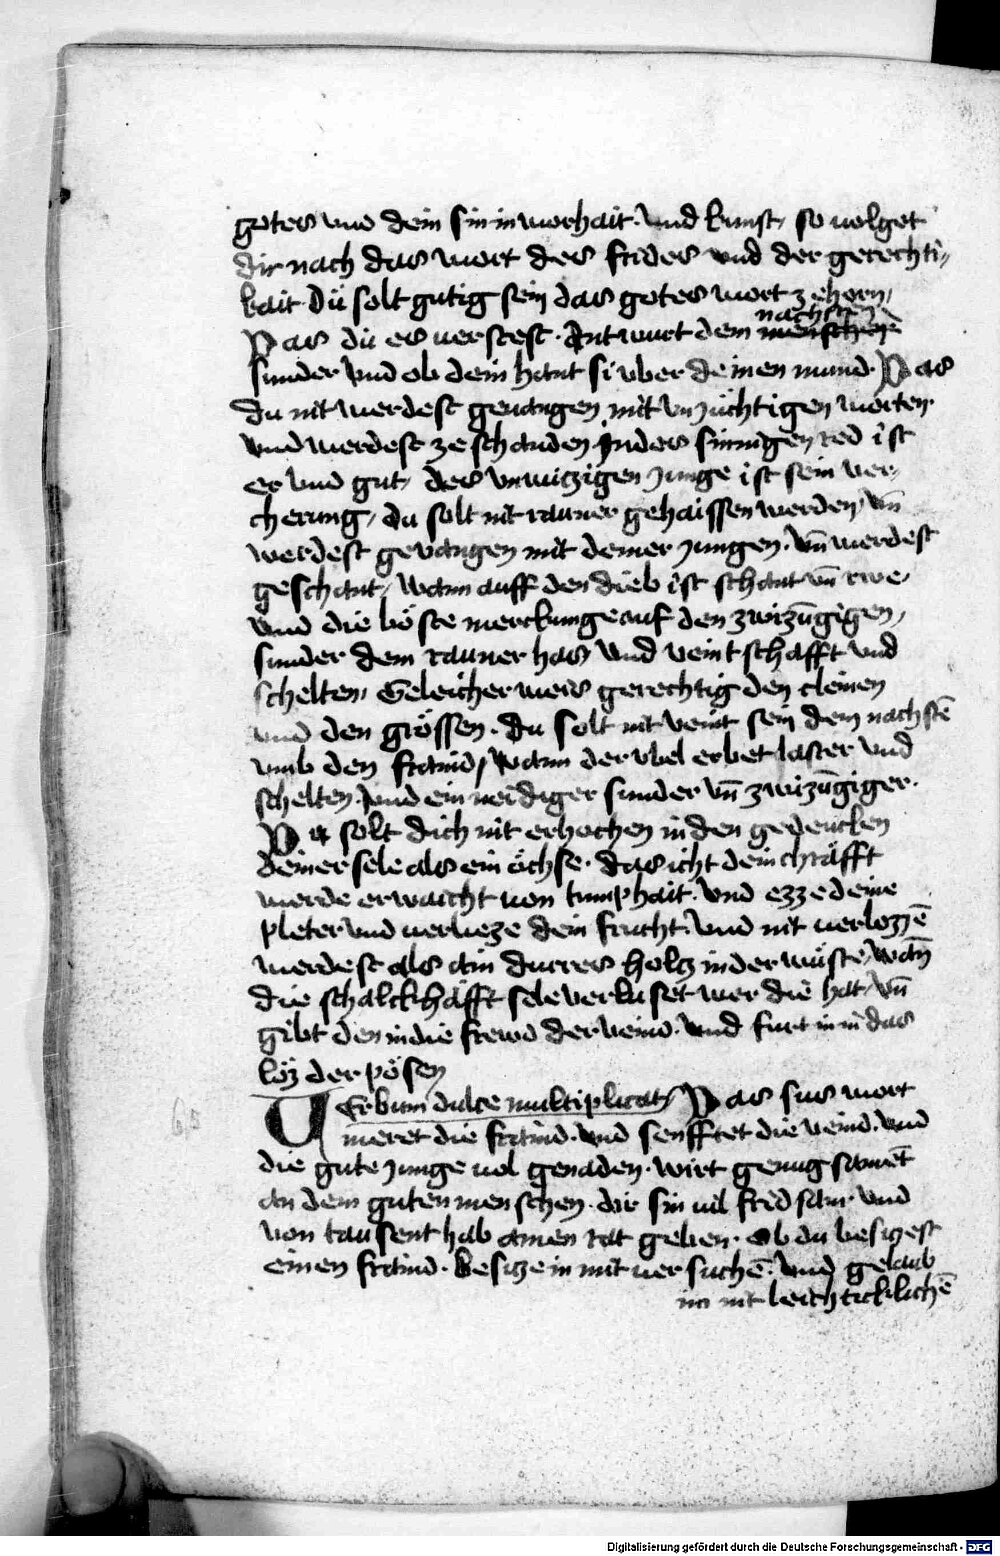 gotes vnd dein sin in worhait. Vnd kunst, so uolget
dir nach das wort des frides vnd der gerechti„
kait. Dü solt gutig sein das gotes wort ze horn,
nachsten
Das dü es uerstest. Antwurt dem menschen
sunder vnd ob dein hant si vber deinen mund. Das
du nit werdest geuangen mit vnzüchtigen worten.
vnd werdest ze schanden Jndes sinnigen red ist
er vnd gut, des vnwitzigen zunge ist sein ver„
cherung, du solt nit rauner gehaissen werden, vn̄
werdest gevangen mit deiner zungen. Vn̄ werdest
geschant, wann auff den dieb ist schant vn̄ rwe„
vnd die böste merckunge auf den zwizūgigen,
sunder dem rauner has vnd veintschafft vnd
schelten, Geleicher weis gerechtig den cleinen
vnd den grössen. du solt nit veint sein dem nachstē
vmb den fraind, Wann der vbel erbet laster vnd
schelten. Jund ein neidiger sunder vn̄ zwizūgiger.
Du solt dich nit erhochen in den gedencken
deiner sele als ein öchse. das icht dein chräfft
werde erwaicht von tumphait. vnd ezze deine
pleter vnd uerlieze dein frucht. Vnd nit uerlozzē
werdest als ain durres holcz in der wüste, wan̄
die schalckhäfft sele verluset wer die hat, vn̄
gibt den in die frewd der veind. vnd furt in in das
löz der pösen
VErbum dulce multiplicat, Das sus wort
meret die fraind. vnd senfftet die veind. vnd
die gute zunge uol genaden. wirt genugsamēt
an dem guten menschen. dir sin uil fridsam. vnd
von tausent hab ainen rat geben. Ob du besiczest
einen fraind. Besicze in mit uersuchē. Vnd gelaub
im nit leichticklichē
Digitalisierung gefördert durch die Deutsche Forschungsgemeinschaft - DFG